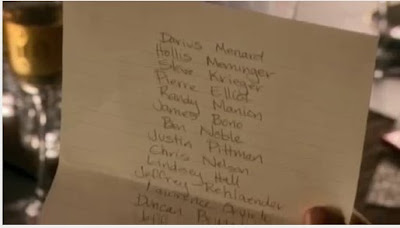 Darius Menard
Hollis Memminger
Steve Krieger
Pierre Elliot
Randy Manion
James Bono
Ben Noble
Justin Pittman
Chris Nelson
Lindsey Hall
Jeffrey Rehlaender
Lawrence
Duncan
Jeff